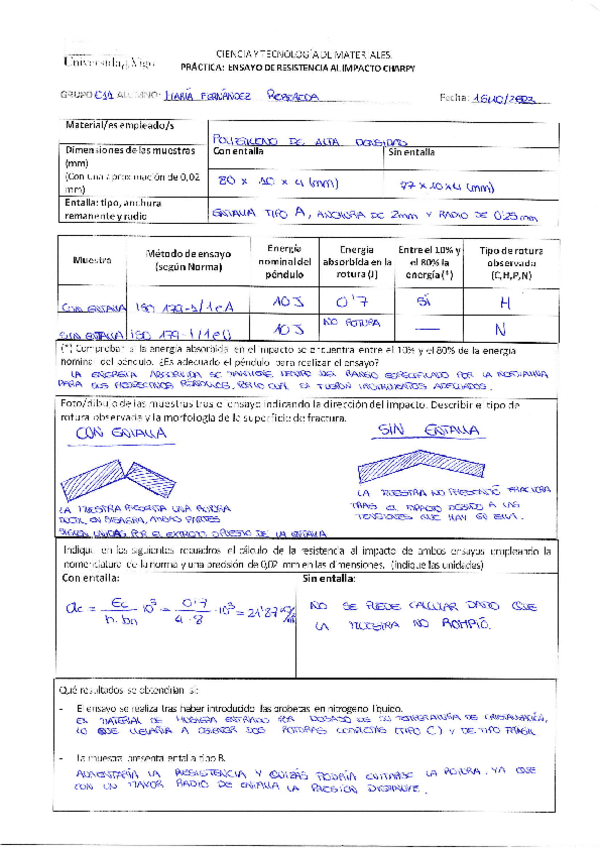 CIENCIA Y TECNOLOGÍA DE MATERIALES
Universidade de Vigo
PRÁCTICA: ENSAYO DE RESISTENCIA AL IMPACTO CHARPY
GRUPO C11 ALUMNO: MARÍA FERNÁNDEZ Fecha:
Material/es empleado/s
POLIETILENO DE ALTA DENSIDAD
Dimensiones de las muestras (mm)
(Con una aproximación de 0,02 mm)
Con entalla
Sin entalla
80 x 10 x 4 (mm)
77 x 10 x 4 (mm)
Entalla: tipo, anchura remanente y radio
ENTALLA TIPO A, ANCHURA DE 2mm Y RADIO DE 0'25 mm
Muestra
Método de ensayo (según Norma)
Energía nominal del péndulo
Energía absorbida en la rotura (J)
Entre el 10% y el 80% la energía (*)
Tipo de rotura observada (C,H,P,N)
CON ENTALLA ISO 179-1/1eA 10 J 0'7 SÍ H
SIN ENTALLA ISO 179-1/1eU 10 J NO ROTURA — N
(*) Comprobar si la energía absorbida en el impacto se encuentra entre el 10% y el 80% de la energía
nominal del péndulo. ¿Es adecuado el péndulo para realizar el ensayo?
LA ENERGÍA ABSORBIDA SE MANTIENE DENTRO DEL RANGO ESPECIFICADO POR LA NORMATIVA
PARA SUS RESPECTIVOS PÉNDULOS, POR LO CUAL
Foto/dibujo de las muestras tras el ensayo indicando la dirección del impacto. Describir el tipo de
rotura observada y la morfología de la superficie de fractura.
CON ENTALLA
SIN ENTALLA
LA MUESTRA PRESENTA UNA ROTURA
DÚCTIL EN BISAGRA, AMBAS PARTES
SIGUEN UNIDAS POR EL EXTREMO OPUESTO DE LA ENTALLA
LA MUESTRA NO PRESENTÓ FRACTURA
TRAS EL IMPACTO DEBIDO A LAS
TENSIONES QUE HAY EN ELLA.
Indique en los siguientes recuadros el cálculo de la resistencia al impacto de ambos ensayos empleando la
nomenclatura de la norma y una precisión de 0,02 mm en las dimensiones. (Indique las unidades)
Con entalla:
Sin entalla:
ac = Ec / h·bn · 10³ = 0'7 / 4·8 · 10³ = 21'87
NO SE PUEDE CALCULAR DADO QUE
LA MUESTRA NO ROMPIÓ.
Qué resultados se obtendrían si:
- El ensayo se realiza tras haber introducido las probetas en nitrógeno líquico.
EL MATERIAL SE HUBIERA ENFRIADO POR DEBAJO DE SU TEMPERATURA DE
LO QUE LLEVARÍA A OBTENER DOS ROTURAS COMPLETAS (TIPO C) Y DE TIPO FRÁGIL
- La muestra presenta entalla tipo B.
AUMENTARÍA LA RESISTENCIA Y QUIZÁS PODRÍA EVITARSE LA ROTURA, YA QUE
CON UN MAYOR RADIO DE ENTALLA LA